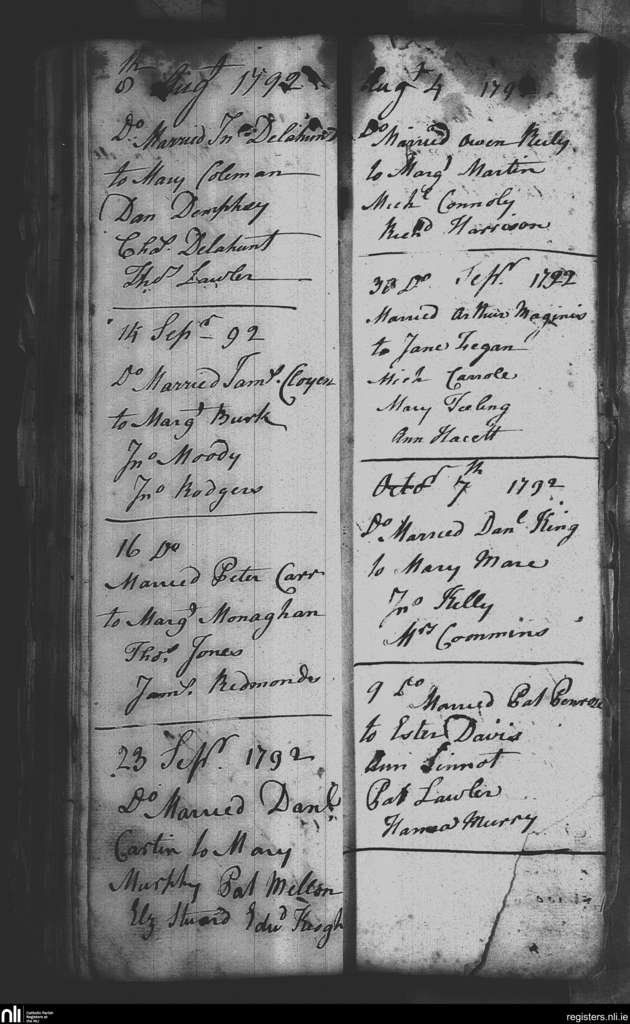 8th Augt 1792
Do Married Jno Delahunt
to Mary Coleman
Dan Demphsy
Chas. Delahunt
Thos Lawler
14 Sepr 92
Do Married Jams. Cloyen
to Margt Burk
Jno Moody
Jno Rodgers
16 Do
Married Peter Carr
to Margt Monaghan
Thos. Jones
Jams. Redmonds
23 Sepr. 1792
Do Married Danl
Cartin to Mary
Murphy Pat Melton
Elz Stuard Edwd Keogh
Augt 4 1792
Do Married Owen Reily
to Margt Martin
Michl Connoly
Richd Harrison
30 Do Sepr. 1792
Married Arthur Maginis
to Jane Fegan
Mich Carrole
Mary Feeling
Ann Hacett
Octor 7th 1792
Do Married Danl King
to Mary Mare
Jno Kelly
Mrs Commins
9 Do Married Pat Penrose
to Ester Davis
Ann Sinnot
Pat Lawler
Hanna Murry
nli
Catholic Parish
Registers at
the NLI
registers.nli.ie